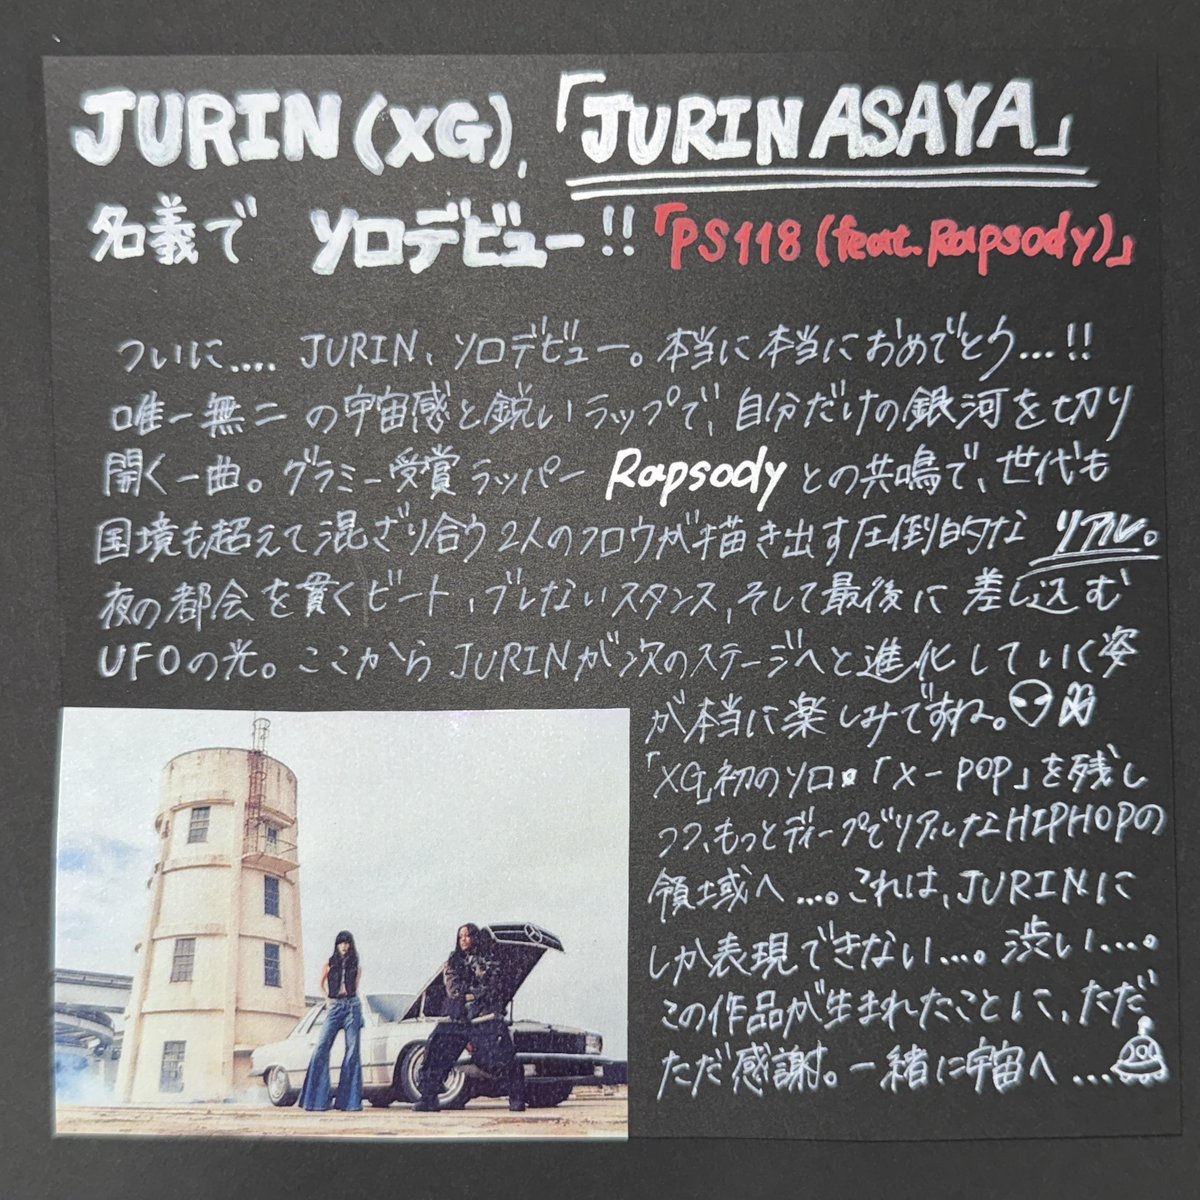 JURIN (XG),「JURIN ASAYA」
名義で ソロデビュー!!「PS118 (feat. Rapsody)」
ついに.... JURIN、ソロデビュー。本当に本当におめでとう...!!
唯一無二の宇宙感と鋭いラップで、自分だけの銀河を切り
開く一曲。グラミー受賞ラッパー Rapsody との共鳴で、世代も
国境も超えて混ざり合う2人のフロウが描き出す圧倒的な リアル。
夜の都会を貫くビート、ブレないスタンス、そして最後に差し込む
UFOの光。ここからJURINが次のステージへと進化していく姿
が本当に楽しみですね。
「XG」初のソロ。「X-POP」を残し
つつ、もっとディープでリアルなHIPHOPの
領域へ...。これは、JURINに
しか表現できない...。渋い...。
この作品が生まれたことに、ただ
ただ感謝。一緒に宇宙へ...